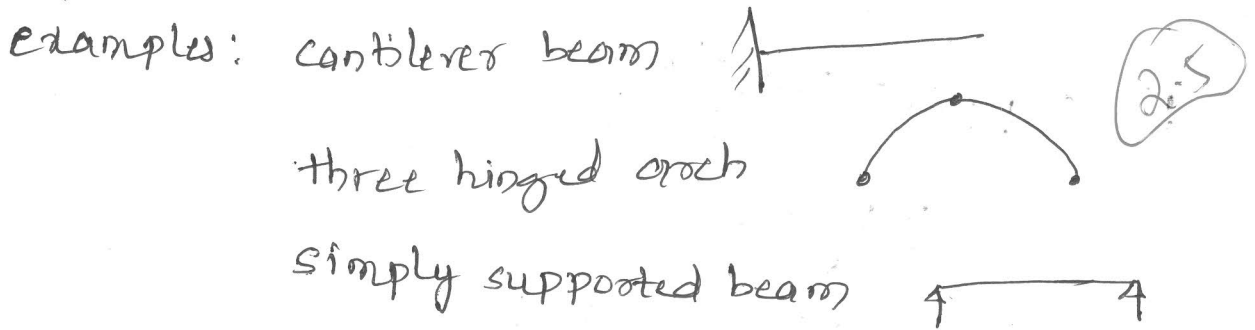 examples: cantilever beam
2.5
three hinged arch
simply supported beam